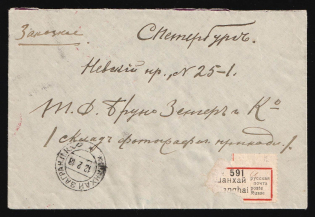 Заказное.
С Петербургъ.
Невскій пр., № 25-1.
Т. Д. Бруно Зенгеръ и Ко
/ Складъ фотографич. принадл. /
591
анхай
anghai